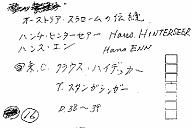 オーストリア・スラロームの伝統
ハンネ・ヒンターゼアー HANS. HINTERSEER
ハンス・エン Hans ENN
回転.C. クラウス・ハイデッカー
T. スタンガシンガー
P.38〜39
16